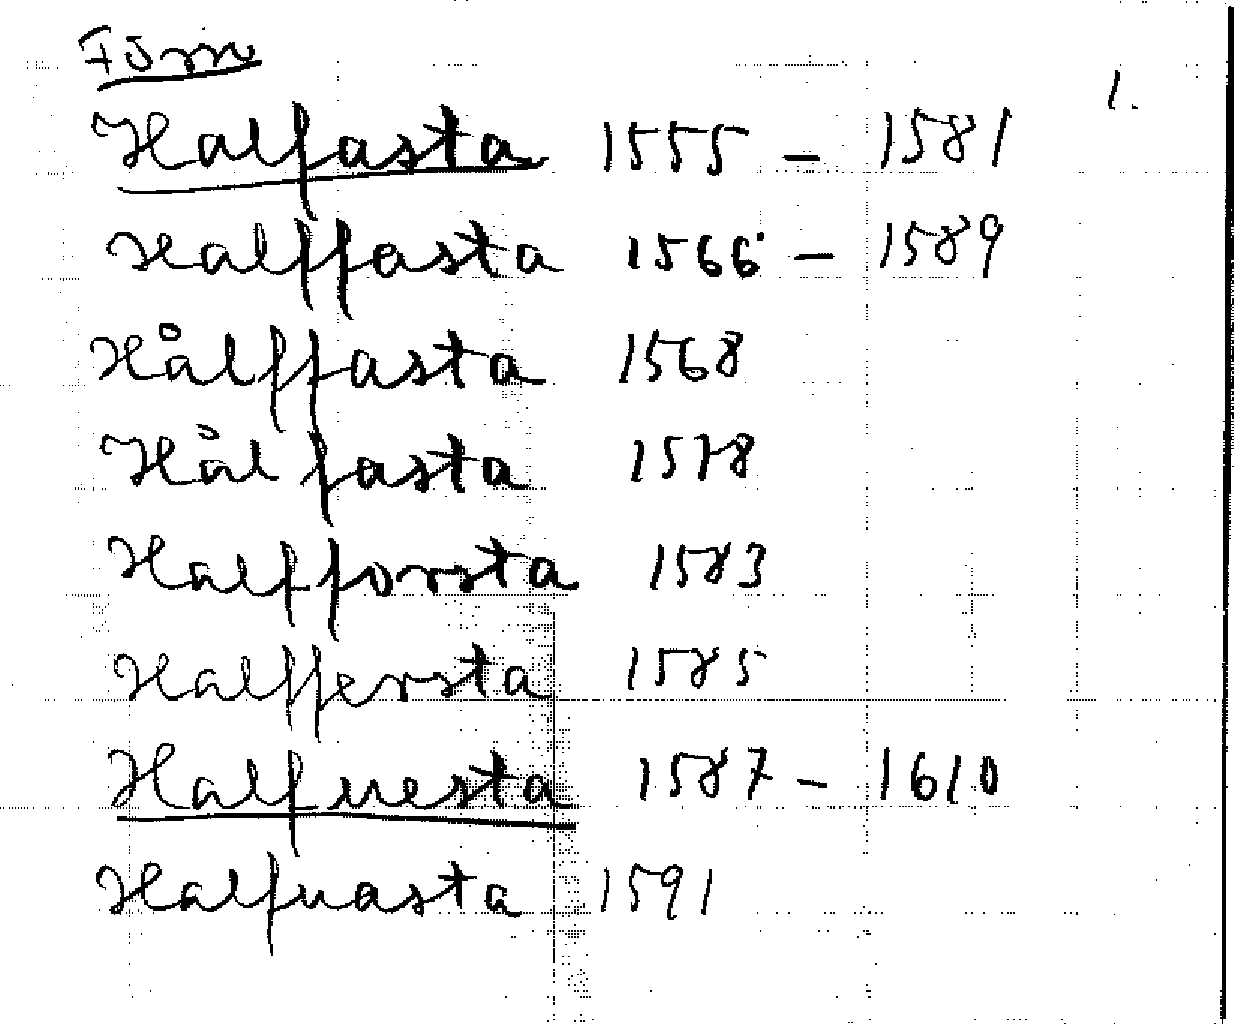 Form
1.
Halfasta 1555 - 1581
Halffasta 1566 - 1589
Hålffasta 1568
Hålfasta 1578
Halfforsta 1583
Halffersta 1585
Halfuesta 1587 - 1610
Halfuasta 1591